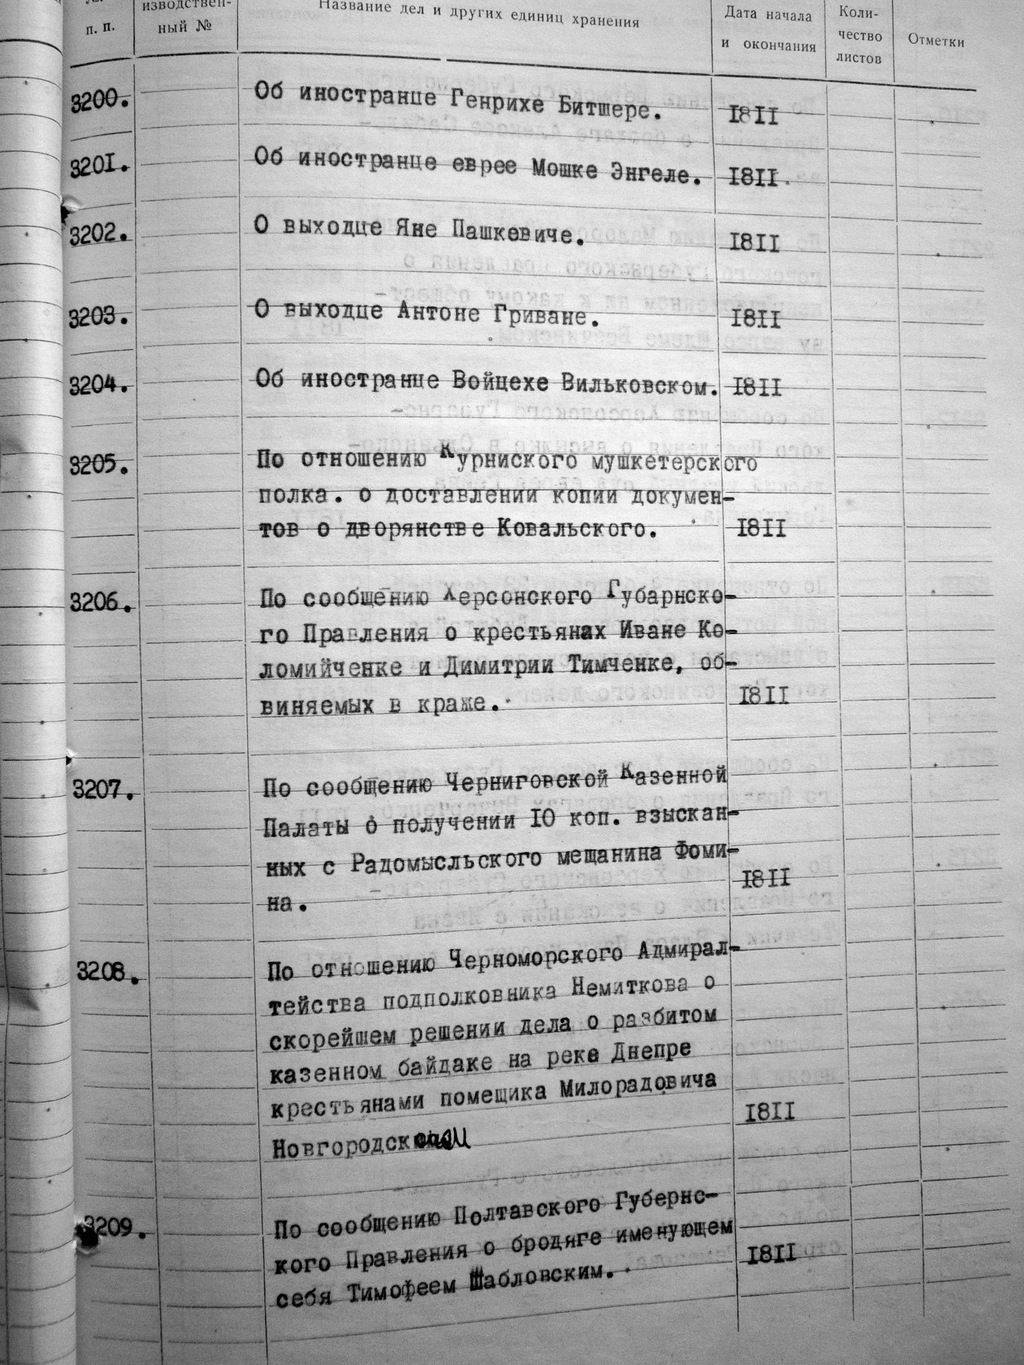 п. п.
изводствен-
ный №
Название дел и других единиц хранения
Дата начала
и окончания
Коли-
чество
листов
Отметки
3200.
Об иностранце Генрихе Битшере.
1811
3201.
Об иностранце еврее Мошке Энгеле.
1811.
3202.
О выходце Яне Пашкевиче.
1811
3203.
О выходце Антоне Гриване.
1811
3204.
Об иностранце Войцехе Вильковском.
1811
3205.
По отношению Курниского мушкетерского
полка. о доставлении копии докумен-
тов о дворянстве Ковальского.
1811
3206.
По сообщению Херсонского Губарнско-
го Правления о крестьянах Иване Ко-
ломийченке и Димитрии Тимченке, об-
виняемых в краже.
1811
3207.
По сообщению Черниговской Казенной
Палаты о получении 10 коп. взыскан-
ных с Радомысльского мещанина Фоми-
на.
1811
3208.
По отношению Черноморского Адмирал-
тейства подполковника Немиткова о
скорейшем решении дела о разбитом
казенном байдаке на реке Днепре
крестьянами помещика Милорадовича
1811
3209.
По сообщению Полтавского Губернс-
кого Правления о бродяге именующем
себя Тимофеем Шабловским.
1811